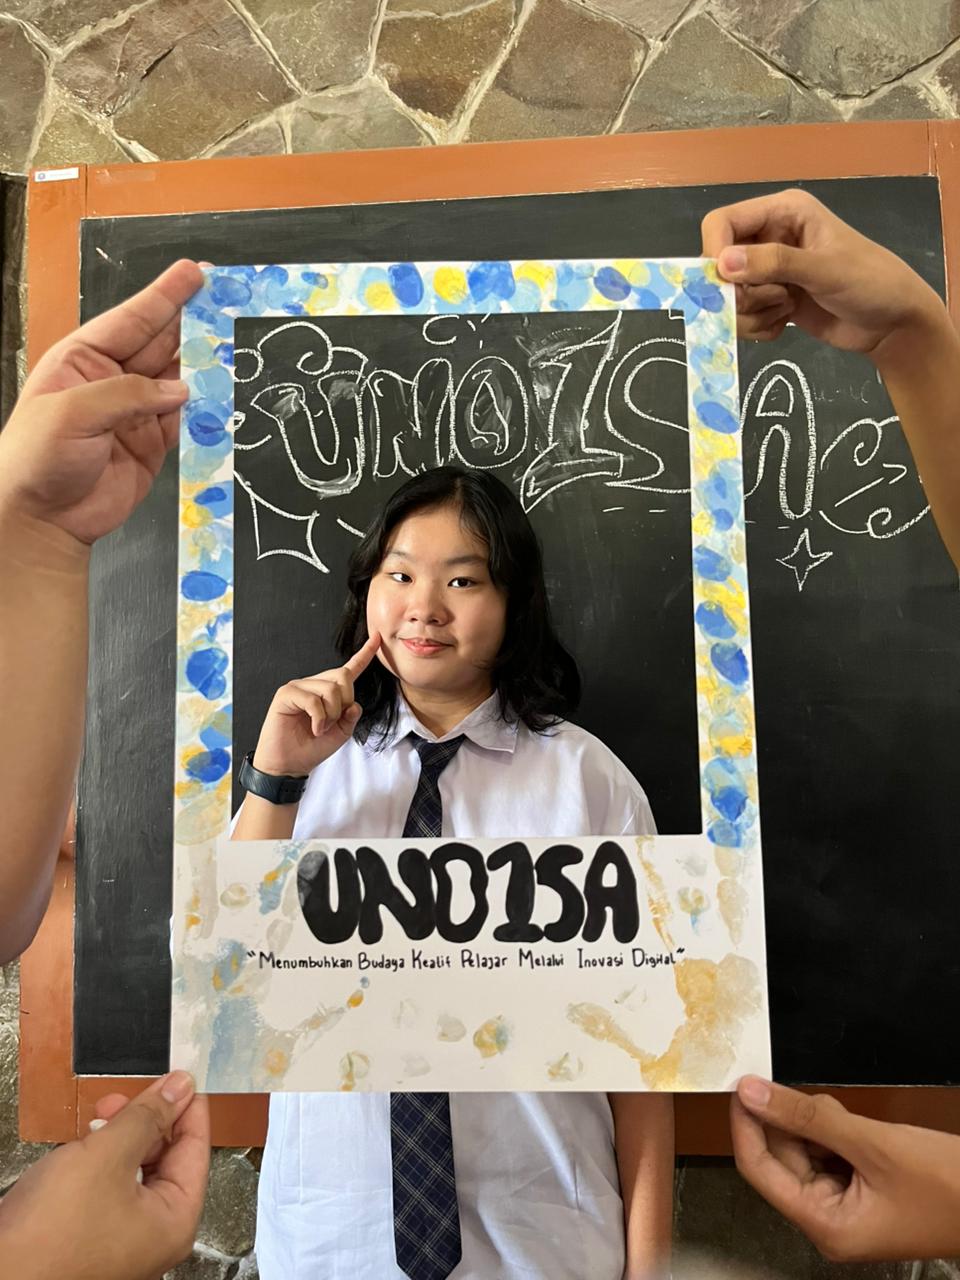 UNO1SA
UNO1SA
"Menumbuhkan Budaya Kealif Pelajar Melalui Inovasi Digital"